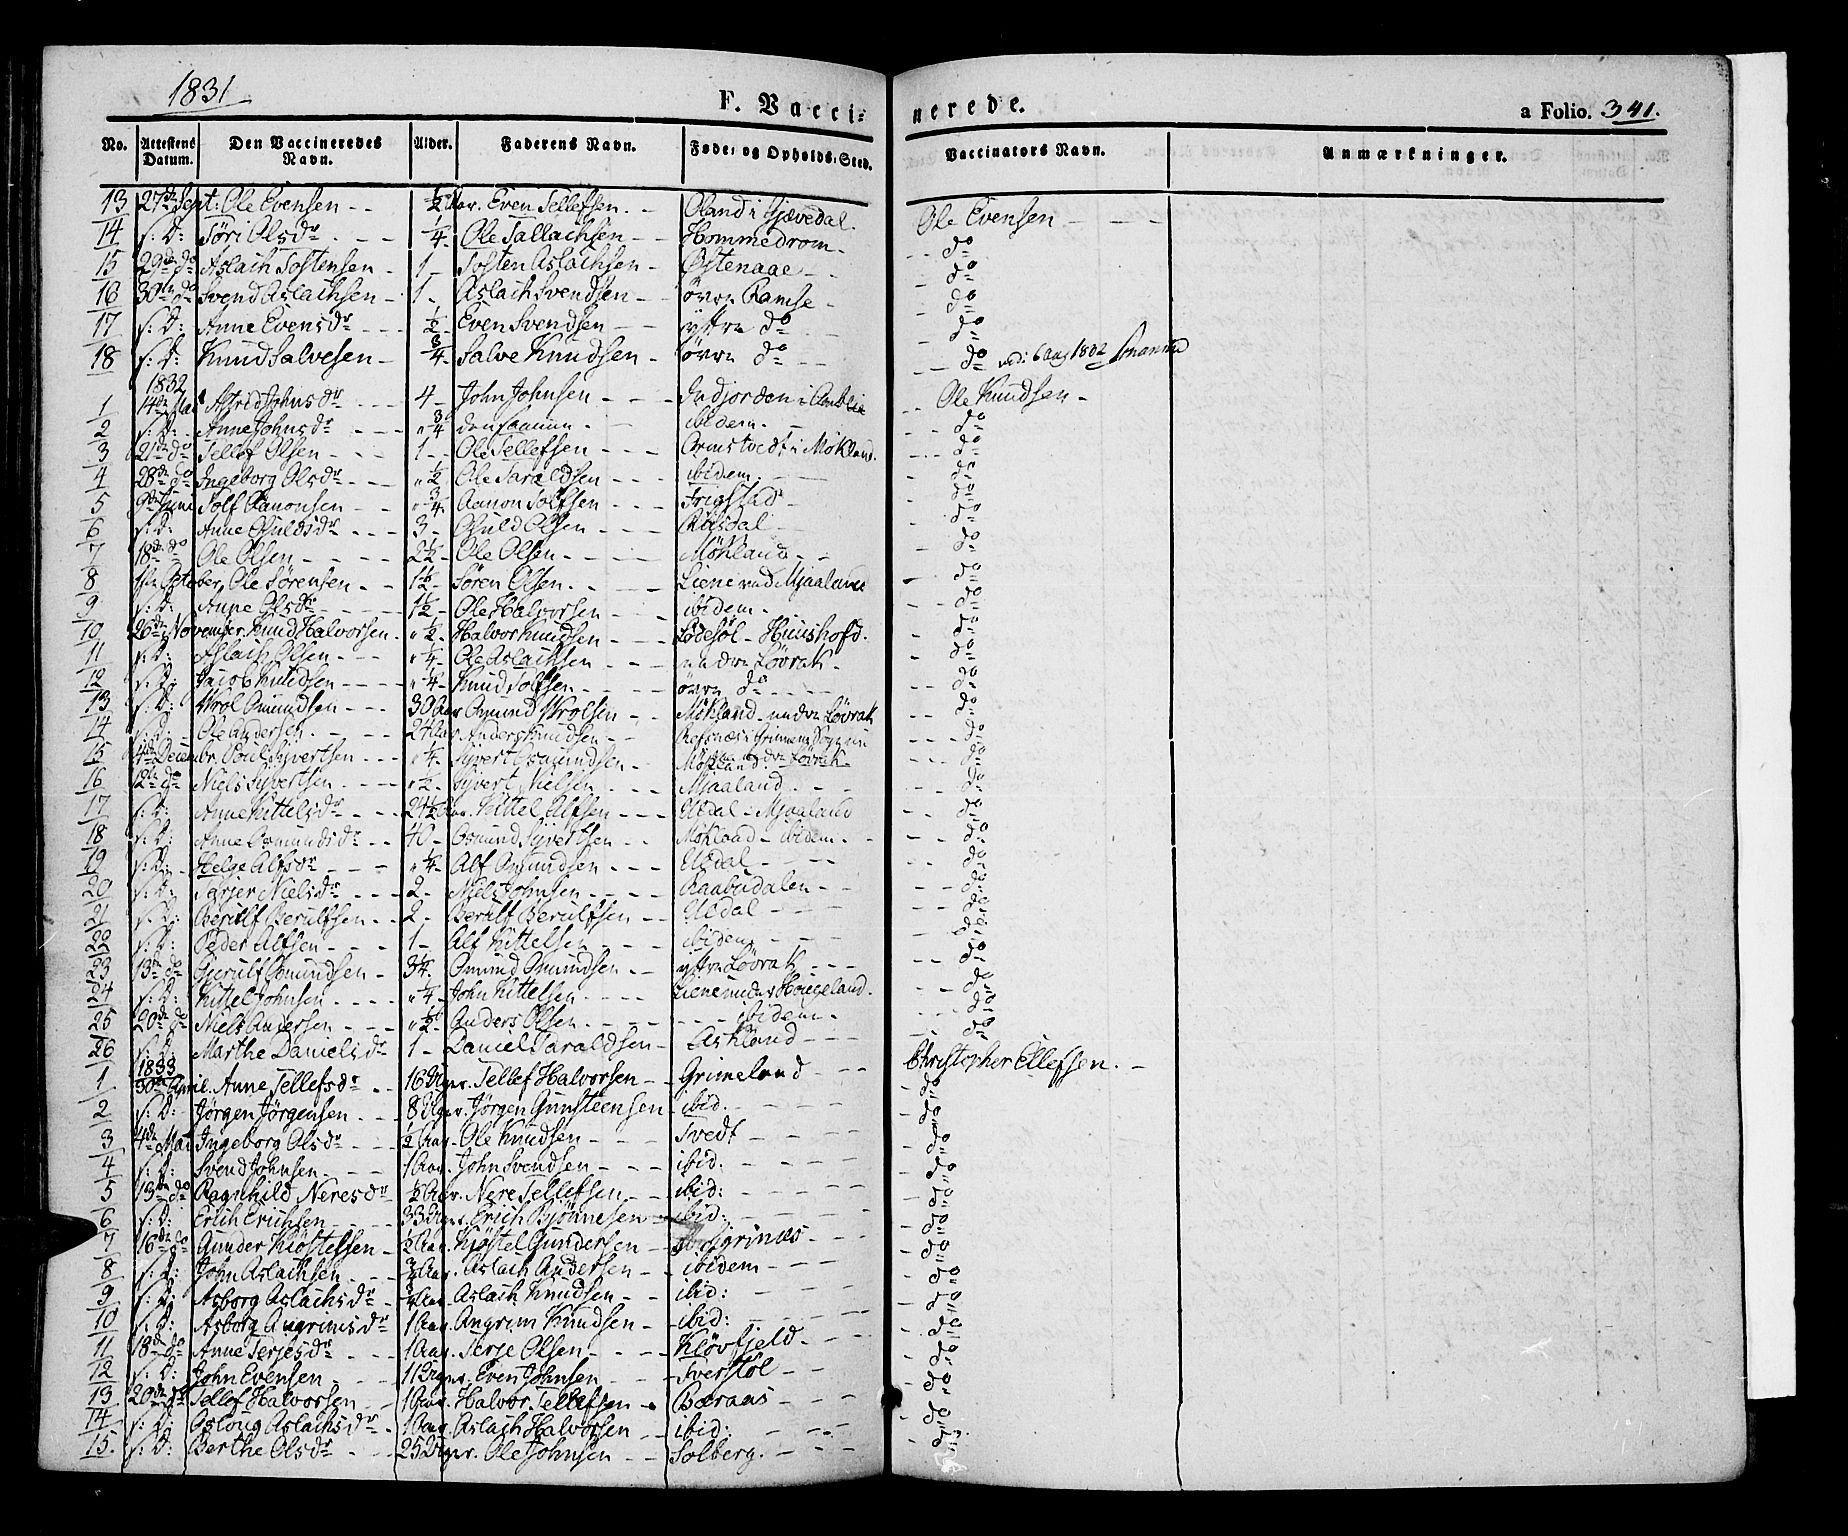 1831
F. Vaccinerede. a Folio. 341.
No. Attestens Datum. Den Vaccineredes Navn. Alder. Faderens Navn. Føde- og Opholds-Sted. Vaccinators Navn. Anmærkninger.
13 27de Sept: Ole Evensen - - 1/2 Aar. Even Tellefsen. - Oland i Gjævedal. Ole Evensen - - -
14 s: D: Töri Olsdr. - - 1/4. Ole Tallachsen - Hommedrom - - - do
15 29de do Aslach Tostensen - 1 - Tosten Aslachsen - Østenaae - - - do
16 30te do Svend Aslachsen - 1 - Aslach Svendsen - - övre Ramse - - do
17 s: D: Anne Evensdr - - - 1/2 - Even Svendsen - - yttre do - - - do
18 s: D: Knud Salvesen - 3/4 - Salve Knudsen - - övre do - - - do
1832
1 14de Mai Astrid Johnsdr - - - 4 - John Johnsen - - - - - Ole Knudsen -
2 s: D: Anne Johnsdr - - - " 3/4 den samme - - ibidem. - - - - do
3 21de do Tellef Olsen - - 1 - - Ole Tellefsen - - - Ormstvedt i Mökland. - - - do
4 28de do Ingeborg Olsdr - - - " 1/2 - Ole Taraldsen - - - ibidem. - - - do
5 9de Juni Tolf Aanonsen - - " 3/4 - Aanon Tolfsen - - Frigstad - - - do
6 s: D: Anne Ghuldsdr - - 3 - Ghuld Olsen - - - Risdal - - - do
7 18de do Ole Olsen - - - - 2 1/2 - Ole Olsen - - - - Mökland - - - do
8 1ste October, Ole Sörensen - - 1 1/2 - Sören Olsen. - - - Liene ved Mjaaland - do
9 s: D: Anne Olsdr - - - - 1 1/2 - Ole Halvorsen - - ibidem. - - - do
10 26de November. Knud Halvorsen. - " 1/2 - Halvor Knudsen - - - Lödesöl - Huushofd. - do
11 s: D: Aslach Olsen - - - " 1/4 - Ole Aslachsen - - - nedre Lövrak. - - do
12 s: D: Jacob Knudsen - - - - " 1/4 - Knud Tolfsen - - - - övre do - - - - - do
13 s: D: Wrol Omundsen - - - 30 Aar Omund Wrolsen - - Mökland - nedre Lövrak - - - do
14 s: D: Ole Andersen. - - - 24 Aar. Anders Knudsen - - - - - do
15 4de Decembr. Poul Syvertsen - - - " 1/4 - Syvert Osmundsen - - Mökland. nedre Lövrak - - - - do
16 12te do Niels Syvertsen - - - " 1/2 - Syvert Nielsen - - - Mjaaland. - - - - do
17 s: D: Anne Kittelsdr - - - 24 1/2 Aar. Kittel Alfsen - - - Uldal - Mjaaland - - do
18 s: D: Anne Osmundsdr - - 40 - Osmund Syvertsen - - Mökland - ibidem. - - - do
19 s: D: Helge Alfsdr - - - " 1/4 - Alf Omundsen - - - Uldal - - - - - do
20 s: D: Tarjer Nielsdr - - - - 2 - Niels Johnsen - - - - Raabudalen - - - - - do
21 s: D: Berulf Berulfsen - - 2 - Berulf Berulfsen - - Uldal - - - - - do
22 s: D: Peder Alfsen - - - - 1 - Alf Kittelsen - - - ibidem. - - - - - do
23 13de do Gjerulf Osmundsen - 3 1/4 - Omund Omundsen - - yttre Lövrak - - - - - do
24 s: D: Kittel Johnsen - - - - " 1/4 - John Kittelsen - - - - Liene under Höigeland. - - do
25 20de do Niels Andersen - - - " 1/2 - Anders Olsen - - - - - - - ibidem - - - - - do
26 s: D: Marthe Danielsdr - 1 - Daniel Taraldsen - - Askland - - - - do
1833
1 30te April. Anne Tellefsdr - - 16 Uger. Tellef Halvorsen - - Grimeland - - - Christopher Ellefsen. -
2 s: D: Jörgen Jörgensen - - - 8 Uger. Jörgen Gunsteensen - ibid. - - - - - do
3 4de Mai Ingeborg Olsdr - - - 1/2 Aar. Ole Knudsen - - - Tvedt - - - - do
4 s: D: Svend Johnsen. - - - - 1 Aar. John Svendsen - - - ibid: - - - - do
5 13de do Ragnhild Neresdr - 1/2 Aar. Nere Tellefsen - - - ibid: - - - - do
6 s: D: Erich Erichsen - - - - 33 Uger. Erich Bjönnesen - - ibid: - - - - do
7 16de do Gunder Kiöstelsen - 1/2 Aar. Kiöstel Gundersen - - - - - do
8 s: D: John Aslachsen - - - - 3/4 Aar. Aslach Andersen - - ibidem - - - - - do
9 s: D: Asborg Aslachsdr - - Aar. Aslach Knudsen - - ibid: - - - do
10 s: D: Asborg Angrimsdr - 1 Aar. Angrim Knudsen - ibid: - - - - do
11 18de do Anne Terjesdr - - - 1 Aar. Terje Olsen - - - - Klövfjeld - - - - do
12 s: D: John Evensen - - - - 11 Uger. Even Johnsen - - Tverstöl - - - do
13 20de do Tellef Halvorsen - - 1 Aar. Halvor Tellefsen - Baraas - - - do
14 s: D: Aslöug Aslachsdr - - 1 Aar. Aslach Halvorsen - ibid: - - - - do
15. s: D: Berthe Olsdr - - - - 25 Uger. Ole Johnsen - - Solberg. - - - - do